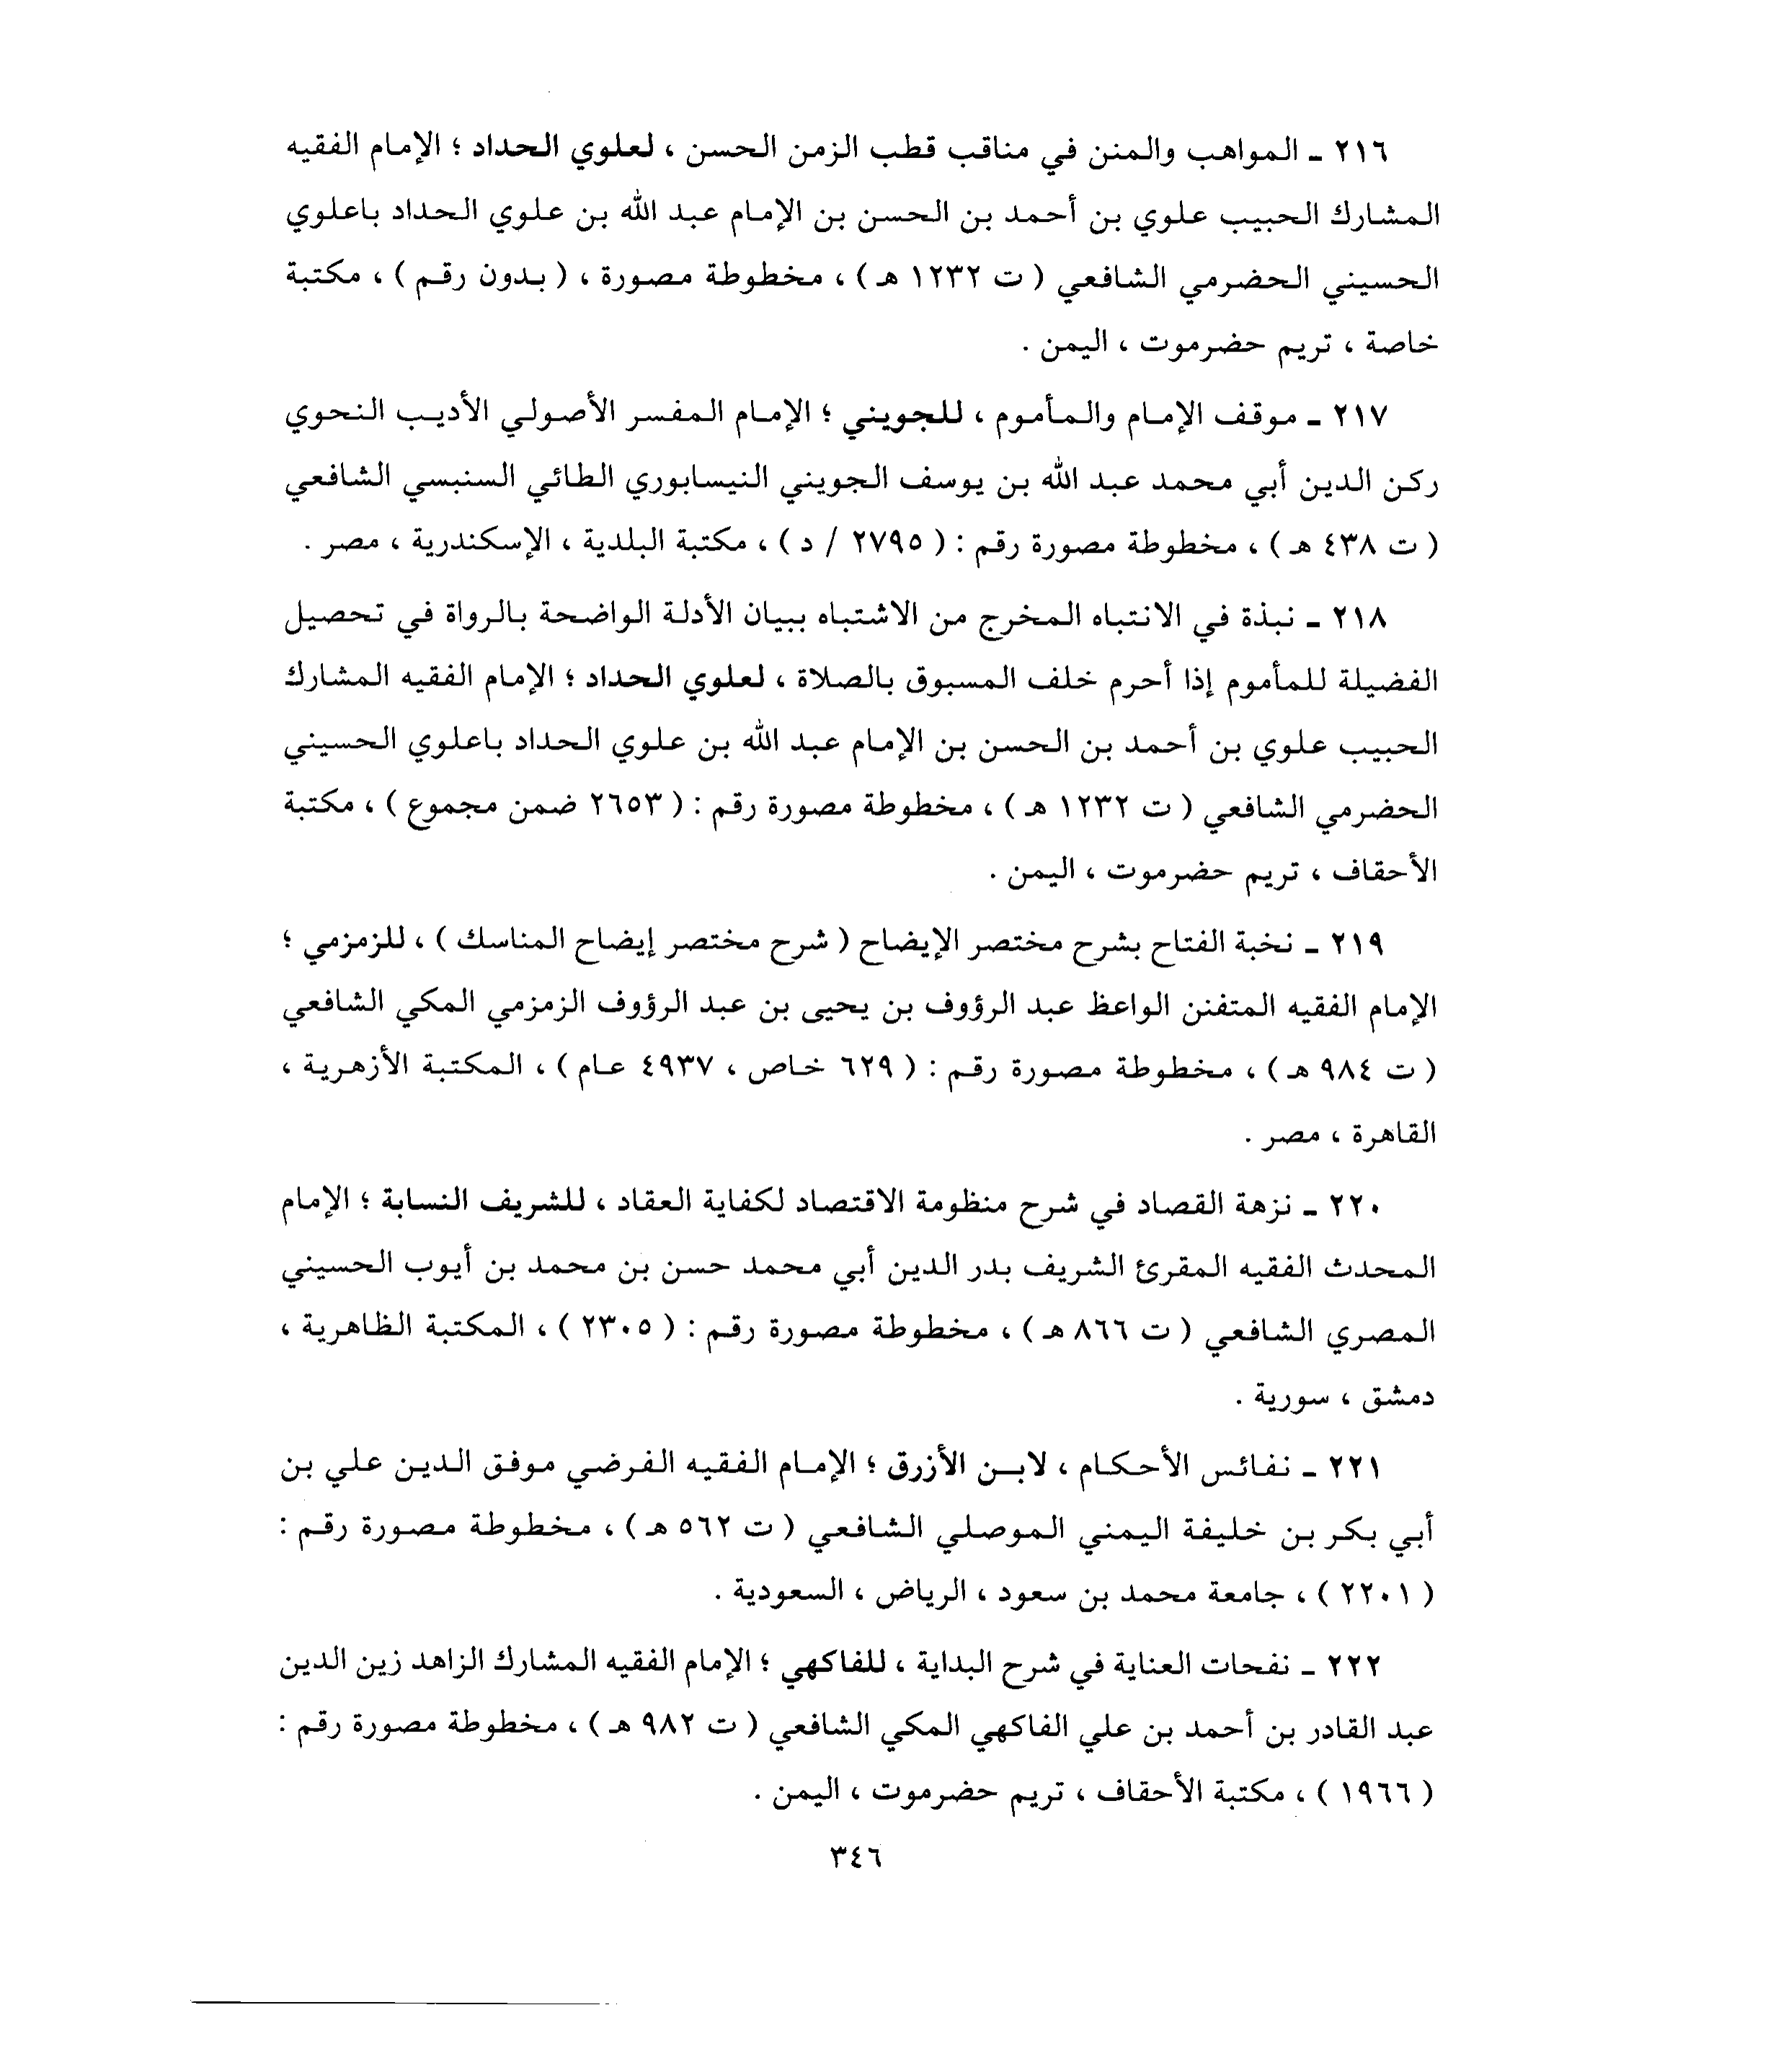 ٢١٦ - المواهب والمنن في مناقب قطب الزمن الحسن ، لعلوي الحداد ؛ الإمام الفقيه
المشارك الحبيب علوي بن أحمد بن الحسن بن الإمام عبد الله بن علوي الحداد باعلوي
الحسيني الحضرمي الشافعي ( ت ١٢٣٢ هـ ) ، مخطوطة مصورة ، ( بدون رقم ) ، مكتبة
خاصة ، تريم حضرموت ، اليمن .
٢١٧ - موقف الإمام والمأموم ، للجويني ؛ الإمام المفسر الأصولي الأديب النحوي
ركن الدين أبي محمد عبد الله بن يوسف الجويني النيسابوري الطائي السنبسي الشافعي
( ت ٤٣٨ هـ ) ، مخطوطة مصورة رقم : ( ٢٧٩٥ / د ) ، مكتبة البلدية ، الإسكندرية ، مصر .
٢١٨ - نبذة في الانتباه المخرج من الاشتباه ببيان الأدلة الواضحة بالرواة في تحصيل
الفضيلة للمأموم إذا أحرم خلف المسبوق بالصلاة ، لعلوي الحداد ؛ الإمام الفقيه المشارك
الحبيب علوي بن أحمد بن الحسن بن الإمام عبد الله بن علوي الحداد باعلوي الحسيني
الحضرمي الشافعي ( ت ١٢٣٢ هـ ) ، مخطوطة مصورة رقم : ( ٢٦٥٣ ضمن مجموع ) ، مكتبة
الأحقاف ، تريم حضرموت ، اليمن .
٢١٩ - نخبة الفتاح بشرح مختصر الإيضاح ( شرح مختصر إيضاح المناسك ) ، للزمزمي ؛
الإمام الفقيه المتفنن الواعظ عبد الرؤوف بن يحيى بن عبد الرؤوف الزمزمي المكي الشافعي
( ت ٩٨٤ هـ ) ، مخطوطة مصورة رقم : ( ٦٢٩ خاص ، ٤٩٣٧ عام ) ، المكتبة الأزهرية ،
القاهرة ، مصر .
٢٢٠ - نزهة القصاد في شرح منظومة الاقتصاد لكفاية العقاد ، للشريف النسابة ؛ الإمام
المحدث الفقيه المقرئ الشريف بدر الدين أبي محمد حسن بن محمد بن أيوب الحسيني
المصري الشافعي ( ت ٨٦٦ هـ ) ، مخطوطة مصورة رقم : ( ٢٣٠٥ ) ، المكتبة الظاهرية ،
دمشق ، سورية .
٢٢١ - نفائس الأحكام ، لابن الأزرق ؛ الإمام الفقيه الفرضي موفق الدين علي بن
أبي بكر بن خليفة اليمني الموصلي الشافعي ( ت ٥٦٢ هـ ) ، مخطوطة مصورة رقم :
( ٢٢٠١ ) ، جامعة محمد بن سعود ، الرياض ، السعودية .
٢٢٢ - نفحات العناية في شرح البداية ، للفاكهي ؛ الإمام الفقيه المشارك الزاهد زين الدين
عبد القادر بن أحمد بن علي الفاكهي المكي الشافعي ( ت ٩٨٢ هـ ) ، مخطوطة مصورة رقم :
( ١٩٦٦ ) ، مكتبة الأحقاف ، تريم حضرموت ، اليمن .
٣٤٦